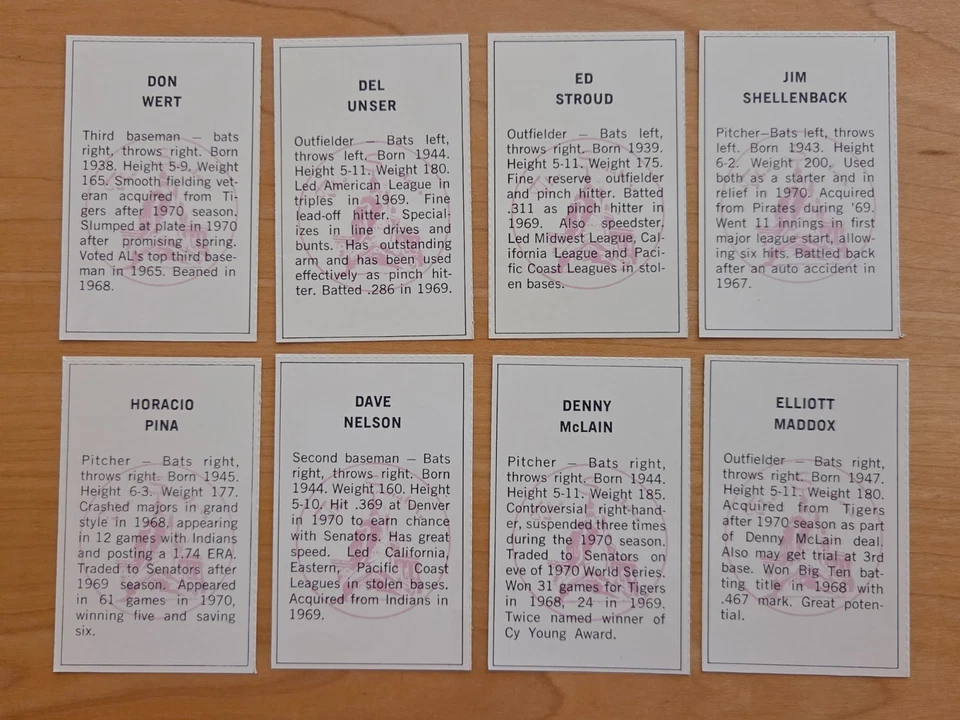 DON
WERT
Third baseman — bats
right, throws right. Born
1938. Height 5-9. Weight
165. Smooth fielding vet-
eran acquired from Ti-
gers after 1970 season.
Slumped at plate in 1970
after promising spring.
Voted AL's top third base-
man in 1965. Beaned in
1968.
DEL
UNSER
Outfielder — Bats left,
throws left. Born 1944.
Height 5-11. Weight 180.
Led American League in
triples in 1969. Fine
lead-off hitter. Special-
izes in line drives and
bunts. Has outstanding
arm and has been used
effectively as pinch hit-
ter. Batted .286 in 1969.
ED
STROUD
Outfielder — Bats left,
throws right. Born 1939.
Height 5-11. Weight 175.
Fine reserve outfielder
and pinch hitter. Batted
.311 as pinch hitter in
1969. Also speedster.
Led Midwest League, Cal-
ifornia League and Paci-
fic Coast Leagues in stol-
en bases.
JIM
SHELLENBACK
Pitcher—Bats left, throws
left. Born 1943. Height
6-2. Weight 200. Used
both as a starter and in
relief in 1970. Acquired
from Pirates during '69.
Went 11 innings in first
major league start, allow-
ing six hits. Battled back
after an auto accident in
1967.
HORACIO
PINA
Pitcher — Bats right,
throws right. Born 1945.
Height 6-3. Weight 177.
Crashed majors in grand
style in 1968, appearing
in 12 games with Indians
and posting a 1.74 ERA.
Traded to Senators after
1969 season. Appeared
in 61 games in 1970,
winning five and saving
six.
DAVE
NELSON
Second baseman — Bats
right, throws right. Born
1944. Weight 160. Height
5-10. Hit .369 at Denver
in 1970 to earn chance
with Senators. Has great
speed. Led California,
Eastern, Pacific Coast
Leagues in stolen bases.
Acquired from Indians in
1969.
DENNY
McLAIN
Pitcher — Bats right,
throws right. Born 1944.
Height 5-11. Weight 185.
Controversial right-hand-
er, suspended three times
during the 1970 season.
Traded to Senators on
eve of 1970 World Series.
Won 31 games for Tigers
in 1968, 24 in 1969.
Twice named winner of
Cy Young Award.
ELLIOTT
MADDOX
Outfielder — Bats right,
throws right. Born 1947.
Height 5-11. Weight 180.
Acquired from Tigers
after 1970 season as part
of Denny McLain deal.
Also may get trial at 3rd
base. Won Big Ten bat-
ting title in 1968 with
.467 mark. Great poten-
tial.